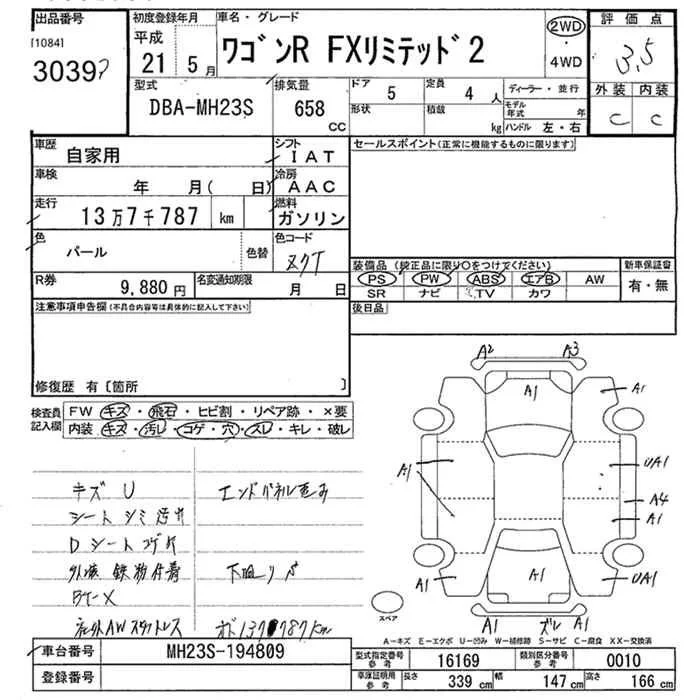 出品番号
[1084]
初度登録年月
平成
21 5月
車名・グレード
ワゴンR FXリミテッド2
2WD
・
4WD
評価点
3.5
型式
DBA-MH23S
排気量
658
CC
ドア 5
定員 4人
形状
積載 kg
ディーラー・並行
モデル年式 年
ハンドル 左・右
外装 内装
C C
車歴 自家用
シフト IAT
セールスポイント(正常に機能するものに限ります)
車検 年 月( 日)
冷房 AAC
走行 13万7千787 km
燃料 ガソリン
色 パール
色替
色コード
ZQT
装備品 (純正品に限り○をつけてください)
PS PW ABS エアB AW
SR ナビ TV カワ
新車保証書
有・無
R券 9,880円
名変通知期限 月 日
後日品
注意事項申告欄(不具合内容等は具体的に記入して下さい)
修復歴 有 [箇所 ]
検査員記入欄
FW キズ・飛石・ヒビ割・リペア跡・×要
内装 キズ・汚レ・コゲ・穴・スレ・キレ・破レ
キズ U
シート シミ 汚レ
D シート コゲ穴
外装 鉄粉付着
エンドパネル歪み
下廻りサ
A2 A3
A1
A1
A1
UA1
A4
A1
A1
A1
UA1
A1 ズレ A1
スペア
A－キズ E－エクボ U－凹み W－補修跡 S－サビ C－腐食 XX－交換済
車台番号 MH23S-194809
登録番号
型式指定番号 参考 16169
類別区分番号 参考 0010
車庫証明用 参考 長さ 339 cm 幅 147 cm 高さ 166 cm